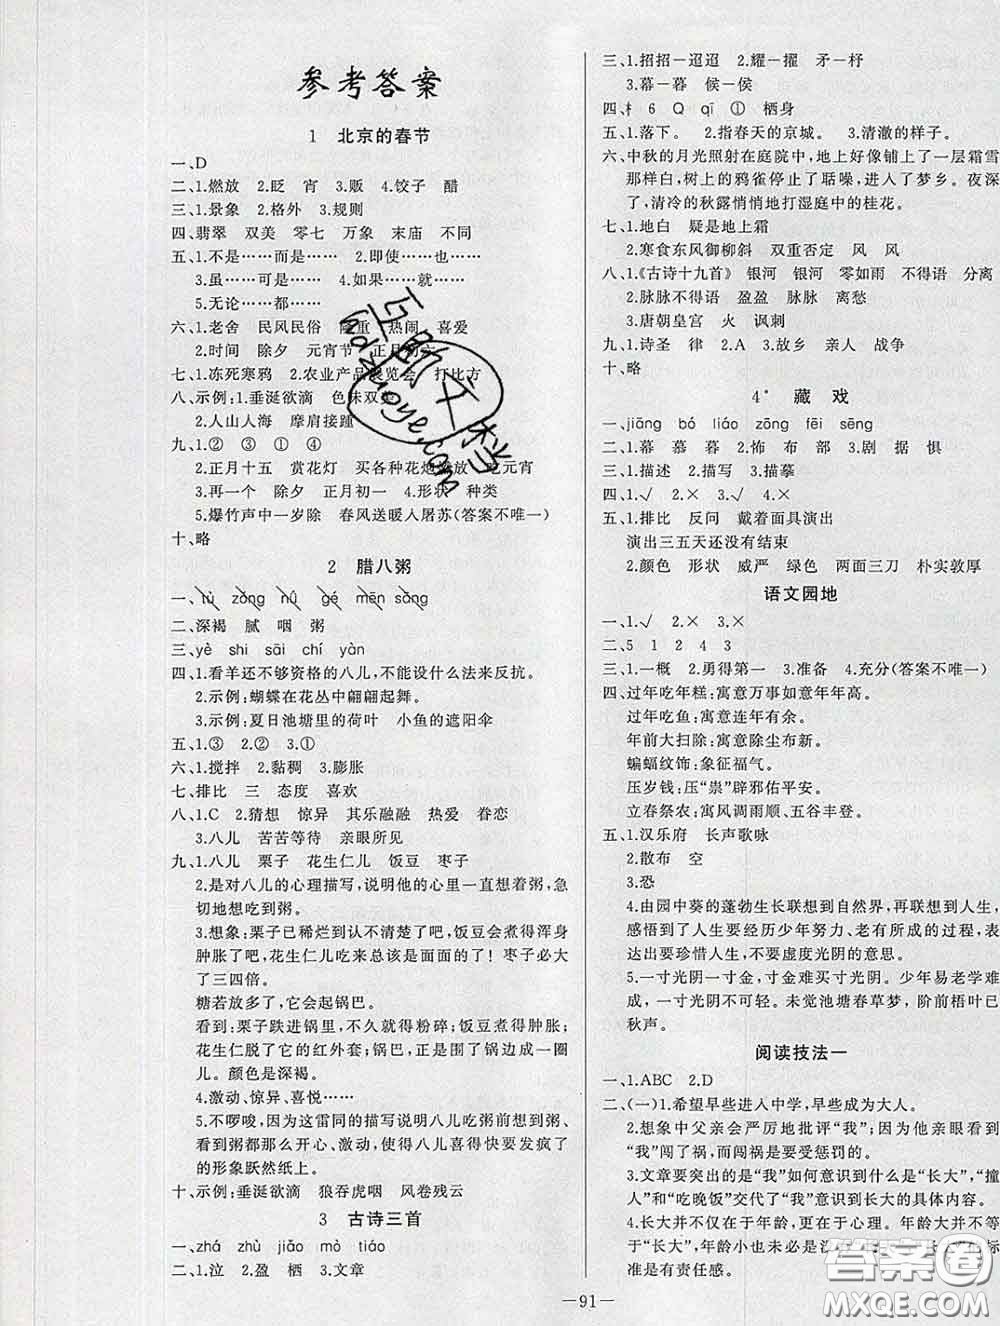 参考答案
1 北京的春节
一、D
二、1.燃放 2.眨 宵 3.贩 4.饺子 醋
三、1.景象 2.格外 3.规则
四、翡翠 双美 零七 万象 末庙 不同
五、1.不是……而是…… 2.即使……也……
3.虽……可是…… 4.如果……就……
5.无论……都……
六、1.老舍 民风民俗 隆重 热闹 喜爱
2.时间 除夕 元宵节 正月初六
七、1.冻死寒鸦 2.农业产品展览会 打比方
八、示例:1.垂涎欲滴 色味双美
2.人山人海 摩肩接踵
九、1.② ③ ① ④
2.正月十五 赏花灯 买各种花炮燃放 吃元宵
3.再一个 除夕 正月初一 4.形状 种类
5.爆竹声中一岁除 春风送暖入屠苏(答案不唯一)
十、略
2 腊八粥
一、tù zǒng nǜ gé mēn sǎng
二、深褐 腻 咽 粥
三、yè shi sāi chí yàn
四、1.看羊还不够资格的八儿,不能设什么法来反抗。
2.示例:蝴蝶在花丛中翩翩起舞。
3.示例:夏日池塘里的荷叶 小鱼的遮阳伞
五、1.③ 2.② 3.①
六、1.搅拌 2.黏稠 3.膨胀
七、排比 三 态度 喜欢
八、1.C 2.猜想 惊异 其乐融融 热爱 眷恋
3.八儿 苦苦等待 亲眼所见
九、1.八儿 栗子 花生仁儿 饭豆 枣子
2.是对八儿的心理描写,说明他的心里一直想着粥,急
切地想吃到粥。
3.想象:栗子已稀烂到认不清楚了吧,饭豆会煮得浑身
肿胀了吧,花生仁儿吃来总该是面面的了!枣子必大
了三四倍。
糖若放多了,它会起锅巴。
看到:栗子跌进锅里,不久就得粉碎;饭豆煮得肿胀;
花生仁脱了它的红外套;锅巴,正是围了锅边成一圈
儿。颜色是深褐。
4.激动、惊异、喜悦……
5.不啰唆,因为这雷同的描写说明八儿吃粥前想到粥、
看到粥都那么开心、激动,使得八儿喜得快要发疯了
的形象跃然纸上。
十、示例:垂涎欲滴 狼吞虎咽 风卷残云
3 古诗三首
一、zhá zhù jiǎo mò tiáo
二、1.泣 2.盈 栖 3.文章
三、1.招招—迢迢 2.耀—擢 矛—杼
3.暮—暮 候—侯
四、木 6 Q qī ① 栖身
五、1.落下。 2.指春天的京城。 3.清澈的样子。
六、中秋的月光照射在庭院中,地上好像铺上了一层霜雪
那样白,树上的鸦雀停止了聒噪,进入了梦乡。夜深
了,清冷的秋露悄悄地打湿庭中的桂花。
七、1.地白 疑是地上霜
2.寒食东风御柳斜 双重否定 风 风
八、1.《古诗十九首》 银河 银河 零如雨 不得语 分离
2.脉脉不得语 盈盈 脉脉 离愁
3.唐朝皇宫 火 讽刺
九、1.诗圣 律 2.A 3.故乡 亲人 战争
十、略
4* 藏 戏
一、jiāng bó liáo zōng fēi sēng
二、1.幕 慕 暮 2.怖 布 部 3.剧 据 惧
三、1.描述 2.描写 3.描摹
四、1.√ 2.× 3.√ 4.×
五、1.排比 反问 戴着面具演出
演出三五天还没有结束
2.颜色 形状 威严 绿色 两面三刀 朴实敦厚
语文园地
一、1.√ 2.× 3.×
二、5 1 2 4 3
三、1.一概 2.勇得第一 3.准备 4.充分(答案不唯一)
四、过年吃年糕:寓意万事如意年年高。
过年吃鱼:寓意连年有余。
年前大扫除:寓意除尘布新。
蝙蝠纹饰:象征福气。
压岁钱:压“祟”辟邪佑平安。
立春祭农:寓风调雨顺、五谷丰登。
五、1.汉乐府 长声歌咏
2.散布 空
3.恐
4.由园中葵的蓬勃生长联想到自然界,再联想到人生,
感悟到了人生要经历少年努力、老有所成的过程,表
达出要珍惜人生,不要虚度光阴的意思。
5.一寸光阴一寸金,寸金难买寸光阴。少年易老学难
成,一寸光阴不可轻。未觉池塘春草梦,阶前梧叶已
秋声。
阅读技法一
一、1.ABC 2.D
二、(一)1.希望早些进入中学,早些成为大人。
2.想象中父亲会严厉地批评“我”;因为亲眼看到
“我”闯了祸,而闯祸是要受惩罚的。
3.文章要突出的是“我”如何意识到什么是“长大”,“撞
人”和“吃晚饭”交代了“我”意识到长大的具体内容。
4.长大并不仅在于年龄,更在于心理。年龄大并不
等于“长大”,年龄小也未必是没
准是有责任感。
—91—
互助文档
hdzuoye.com
答案圈
MXQE.COM